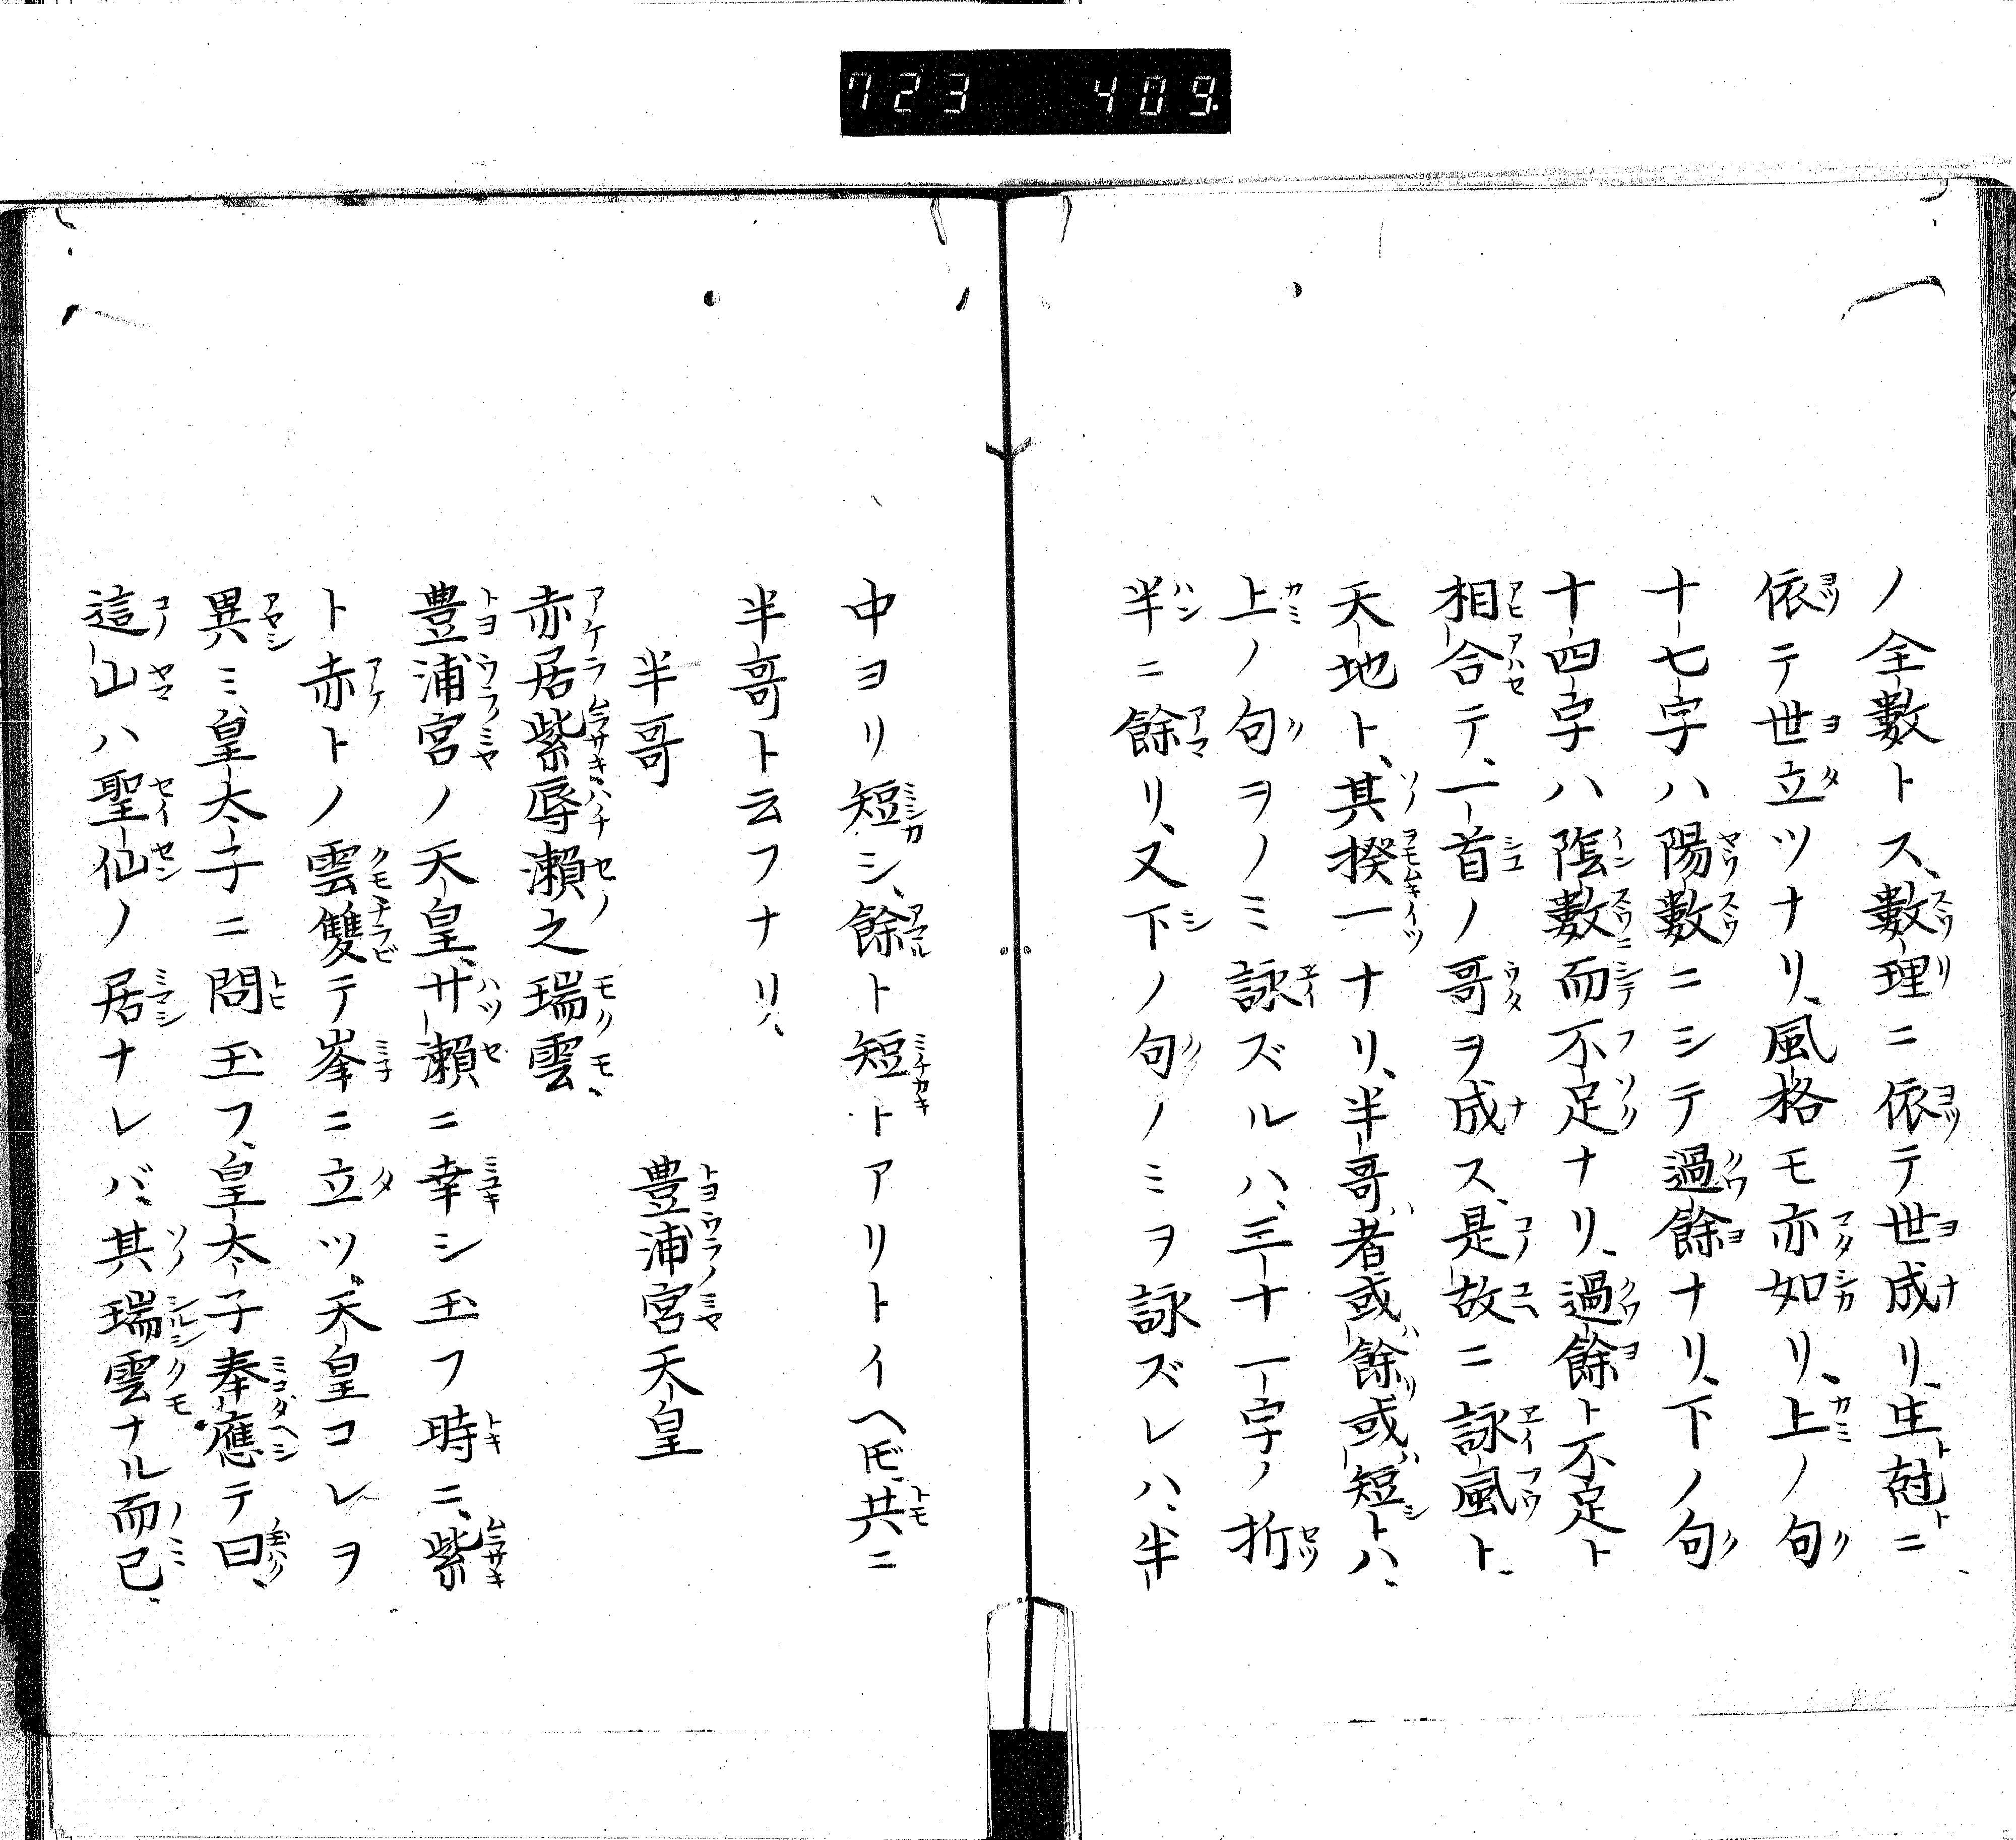 723 409
ノ全數トス、數理ニ依テ世成リ、生尅ニ
依テ世立ツナリ、風格モ亦如リ、上ノ句
十七字ハ陽數ニシテ過餘ナリ、下ノ句
十四字ハ陰數而不足ナリ、過餘ト不足ト
相合テ、一首ノ哥ヲ成ス、是故ニ詠風ト、
天地ト、其揆一ナリ、半哥者或餘或短トハ、
上ノ句ヲノミ詠ズルハ、三十一字ノ折
半ニ餘リ、又下ノ句ノミヲ詠ズレハ、半
中ヨリ短シ、餘ト短トアリトイヘ𪜈、共ニ
半哥ト云フナリ、
半哥 豊浦宮天皇
赤居紫辱瀬之瑞雲、
豊浦宮ノ天皇、廿瀬ニ幸シ玉フ時ニ、紫
ト赤トノ雲雙テ峯ニ立ツ、天皇コレヲ
異ミ、皇太子ニ問玉フ、皇太子奉應テ曰、
這山ハ聖仙ノ居ナレバ、其瑞雲ナル而已、